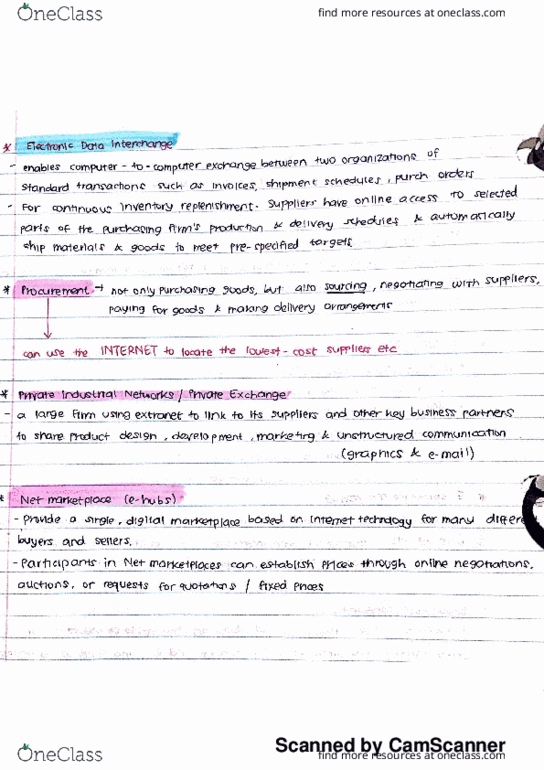 OneClass
find more resources at oneclass.com
* Electronic Data Interchange
- enables computer-to-computer exchange between two organizations of
standard transactions such as invoices, shipment schedules, purch orders
- For continuous inventory replenishment. Suppliers have online access to selected
parts of the purchasing firm's production & delivery schedules & automatically
ship materials & goods to meet pre-specified targets
* Procurement → not only purchasing goods, but also sourcing, negotiating with suppliers,
paying for goods & making delivery arrangements
can use the INTERNET to locate the lowest-cost suppliers etc
* Private Industrial Networks / Private Exchange
- a large firm using extranet to link to its suppliers and other key business partners
to share product design, development, marketing & unstructured communication
(graphics & e-mail)
* Net marketplace (e-hubs)
- Provide a single, digital marketplace based on Internet technology for many differe
buyers and sellers.
- Participants in Net marketplaces can establish prices through online negotiations,
auctions, or requests for quotations / fixed prices
Scanned by CamScanner
OneClass
find more resources at oneclass.com